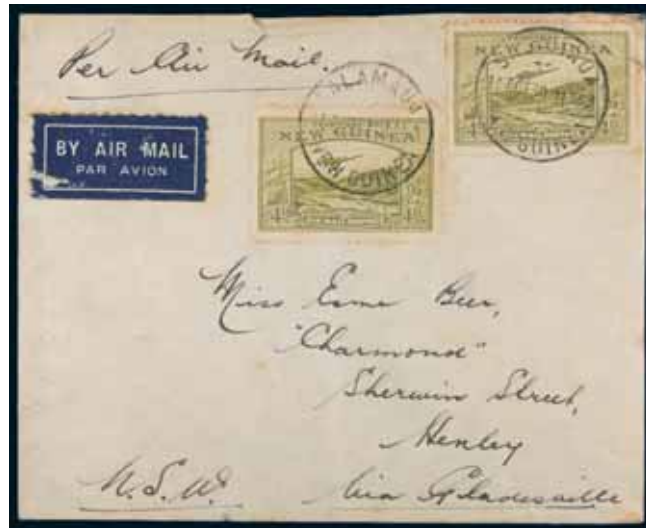 Per Air Mail.
BY AIR MAIL
PAR AVION
SALAMAUA
NEW GUINEA
NEW GUINEA
4D 4D
NEW GUINEA
NEW GUINEA
Miss Esme Beer,
"Charmond"
Sherwin Street,
Henley
N.S.W. Via Gladesville